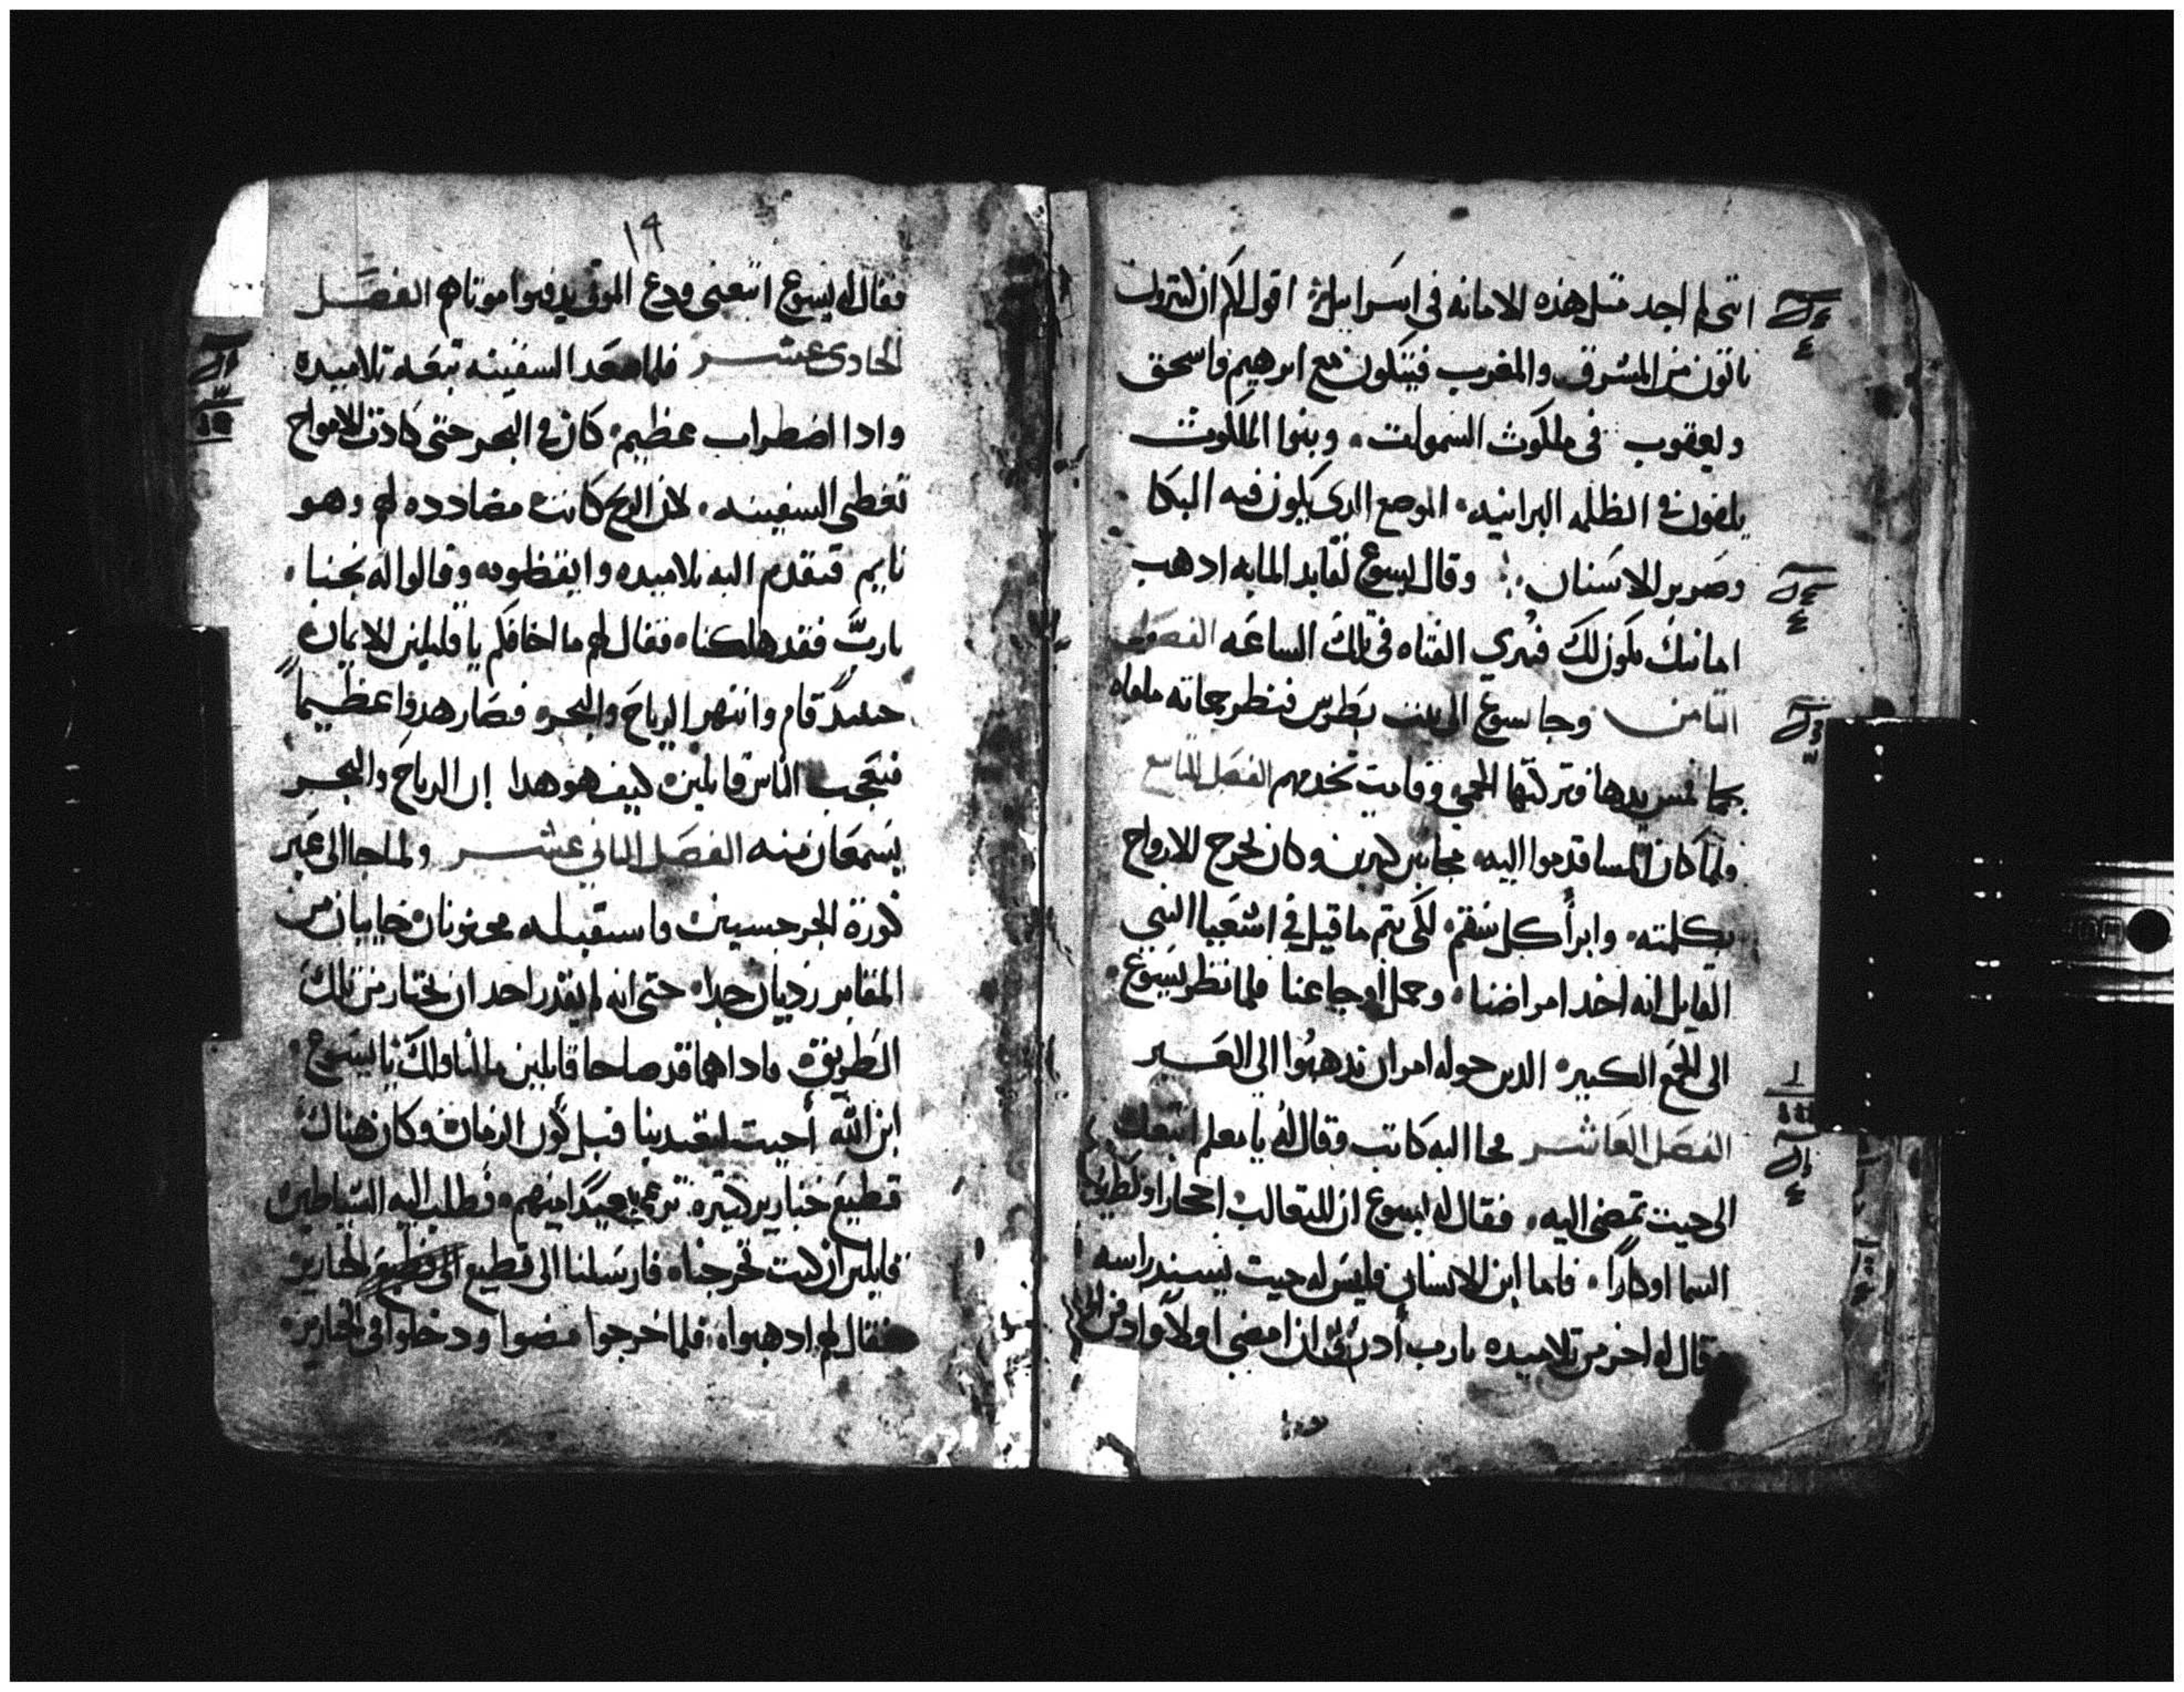 انني لم اجد مثل هذه الامانه في اسراييل اقول لكم ان كثيرون
ياتون من المشرق والمغرب فيتكون مع ابرهيم واسحق
ويعقوب في ملكوت السموات وبنوا الملكوت
يلقون في الظلمه البرانيه الموضع الدي يكون فيه البكا
وصرير الاسنان وقال يسوع لقايد المايه ادهب
امانتك تكون لك فبري الفتاه في تلك الساعه الفصل
الثامن وجا يسوع الى بيت بطرس فنظر حماته ملقاه
بحما فمس يدها فتركتها الحمى وقامت تخدمهم الفصل التاسع
ولما كان المسا قدموا اليه مجانين كثيرين وكان يخرج الارواح
بكلمته وابرأ كل سقم لكي يتم ما قيل في اشعيا النبي
القايل انه اخد امراضنا وحمل أوجاعنا فلما نظر يسوع
الى الجمع الكبيره الدين حوله امر ان يدهبوا الى العبر
الفصل العاشر فجا اليه كاتب وقال له يا معلم اتبعك
الى حيت تمضي اليه فقال له يسوع ان للتعالب اجحارا ولطيور
السما اوكارا فاما ابن الانسان فليس له حيت يسند راسه
وقال له اخر من تلاميده يا رب أدن لي ان امضي اولا وادفن ابي
١٩
فقال له يسوع اتبعني ودع الموتى يدفنوا موتاهم الفصل
الحادي عشر فلما صعد السفينه تبعه تلاميده
وادا اضطراب عظيم كان في البحر حتى كادت الامواج
تغطي السفينه لان الريح كانت مضادده لهم وهو
نايم فتقدم اليه تلاميده وايقظوه وقالوا له نجنا
يا رب فقد هلكنا فقال لهم ما اخافكم يا قليلين الايمان
حينيد قام وانتهر الرياح والبحر فصار هدوا عظيما
فتعجب الناس قايلين كيف هو هدا إن الرياح والبحر
يسمعان منه الفصل التاني عشر ولما جا الى عبر
كورة الجرجسيين فاستقبله مجنونان خايبان من
المقابر رديان جدا حتى انه لم يقدر احد ان يختار من تلك
الطريق وادا هما قد صاحا قايلين ما لنا ولك يا يسوع
ابن الله أجيت لتعدبنا قبل كون الزمان وكان هناك
قطيع خنازير كتيره ترعى بعيدا منهم فطلب اليه الشياطين
قايلين ان كنت تخرجنا فارسلنا الى قطيع الخنازير
فقال لهم ادهبوا فلما خرجوا مضوا ودخلوا في الخنازير